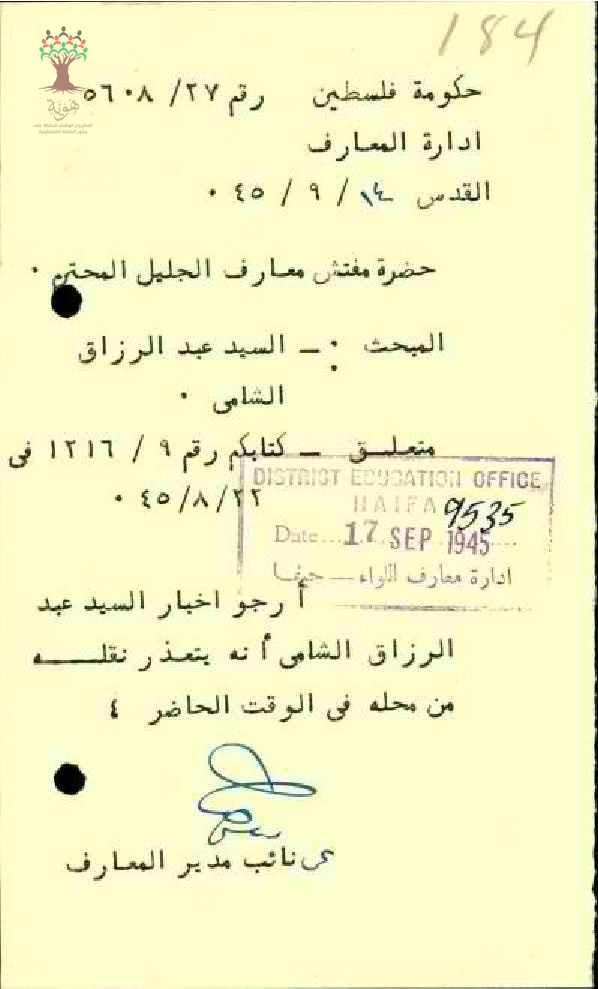 184
هوية
حكومة فلسطين رقم ٢٧/ ٥٦٠٨
ادارة المعارف
القدس ١٤ / ٩ / ٤٥ ٠
حضرة مفتش معارف الجليل المحترم ٠
المبحث :ـ السيد عبد الرزاق
الشامى ٠
متعليق ـ كتابكم رقم ٩ / ١٢١٦ فى
٢٢/٨/٤٥ ٠
DISTRICT EDUCATION OFFICE
HAIFA
9535
Date 17 SEP 1945
ادارة معارف اللواء — حيفا
أرجو اخبار السيد عبد
الرزاق الشامى أنه يتعذر نقلـــه
من محله فى الوقت الحاضر ٤
عن نائب مدير المعارف